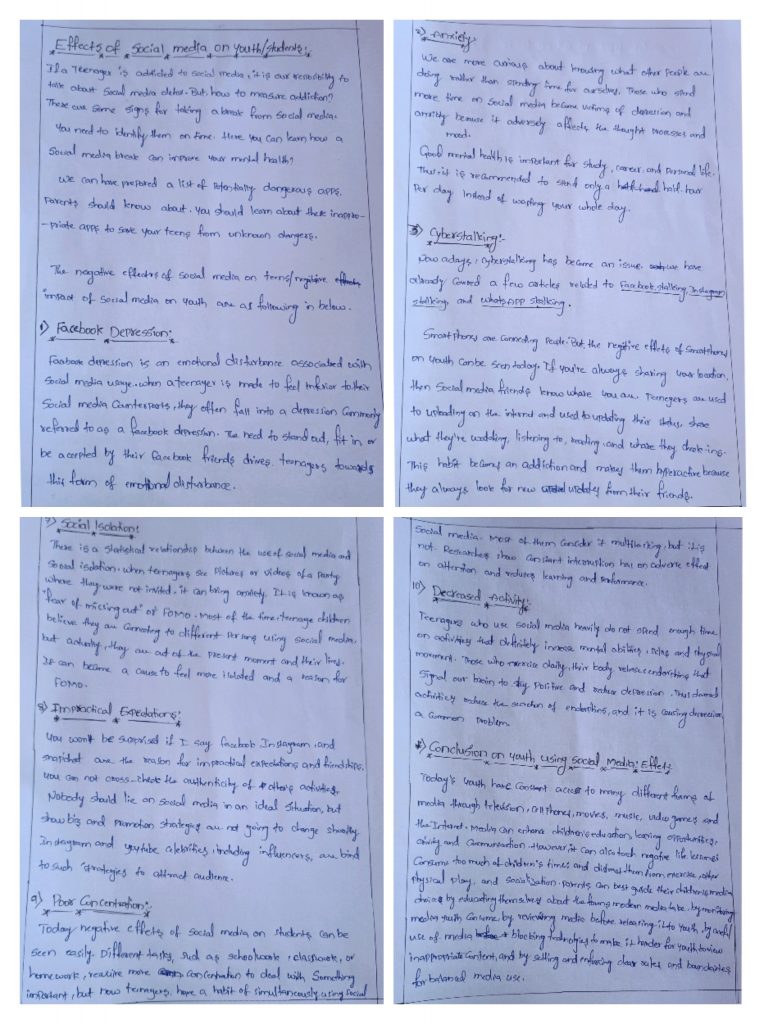 Effects of Social media on youth/students:-
If a Teenager is addicted to social media, it is our
to
talk about Social media detox. But, how to measure addiction?
There are some signs for taking a break from social media.
You need to identify them on time. Here you can learn how a
Social media break can improve your mental health?
We can have prepared a list of Potentially dangerous apps.
Parents should know about. You should learn about these inappro-
-priate apps to save your teens from unknown dangers.
The negative effects of social media on teens/
impact of Social media on youth are as following in below.
1) Facebook Depression:-
Facebook depression is an emotional disturbance associated with
Social media usage. when a teenager is made to feel inferior to their
Social media Counterparts, they often fall into a depression Commonly
referred to as a facebook depression. The need to stand out, fit in, or
be accepted by their facebook friends drives teenagers towards
this form of emotional disturbance.
2) Anxiety:
We are more curious about knowing what other People are
doing rather than spending time for ourselves. Those who spend
more time on Social media become victims of depression and
anxiety because it adversely affects the thought processes and
mood.
Good mental health is important for study, career, and Personal life.
Thus it is recommended to spend only a half-hour
Per day Instead of your whole day.
Cyberstalking:-
Now a days, Cyberstalking has become an issue. we have
already a few articles related to Facebook stalking, Instagram
stalking, and WhatsAPP stalking.
Smartphones are Connecting People. But, the effects of Smartphones
on youth can be seen today. If you're always sharing your location,
then Social media friends know where you are. Teenagers are used
to uploading on the internet and used to updating their status, share
what they're listening to, reading, and where they check-ins.
This habit becomes an addiction and makes them hyperactive because
they always look for new updates from their friends.
7) Social Isolation:
There is a statistical relationship between the use of social media and
Social isolation. when teenagers see Pictures or videos of a Party
where they were not invited, it can bring anxiety. It is known as
"fear of missing out" or FOMO. Most of the time, teenage children
believe they are Connecting to different Persons using social media,
but actually, they are out of the Present moment and their lives.
It can become a cause to feel more isolated and a reason for
FOMO.
8) Impractical Expectations:
You won't be surprised if I say facebook, Instagram, and
snapchat are the reason for impractical expectations and friendships.
you can not cross-check the authenticity of others activities.
Nobody should lie on social media in an ideal situation, but
showbiz and Promotion strategies are not going to change shortly.
Instagram and youtube celebrities, including influencers, are bind
to such strategies to attract audience.
9) Poor Concentration:
Today negative effects of social media on students can be
seen easily. Different tasks, such as schoolwork, classwork, or
homework, require more Concentration to deal with Something
important, but now teenagers have a habit of simultaneously using social
social media. Most of them Consider it multitasking, but it is
not. Researches show Constant interruption has an adverse effect
on attention and reduces learning and performance.
10) Decreased Activity:
Teenagers who use social media heavily do not spend enough time
on activities that definitely increase mental abilities, and Physical
movement. Those who exercise daily, their body releases that
signal our brain to stay Positive and reduce depression. Thus
activities reduce the of endorphins, and it is causing depression
a Common Problem.
*) Conclusion on youth using social Media: Effect:
Today's youth have Constant access to many different forms of
media through television, cell Phones, movies, music, video games and
the Internet. Media can enhance children's education, learning opportunities,
and Communication. However, it can also teach negative life lessons
Consume too much of children's times and distract them from exercise, other
Physical play, and socialization. Parents can best guide their children's media
choices by educating themselves about the modern media take, by monitoring
media youth Consume, by reviewing media before releasing it to youth, by careful
use of media blocking technologies to make it harder for youth to view
inappropriate Content, and by setting and enforcing clear rules and boundaries
for balanced media use.